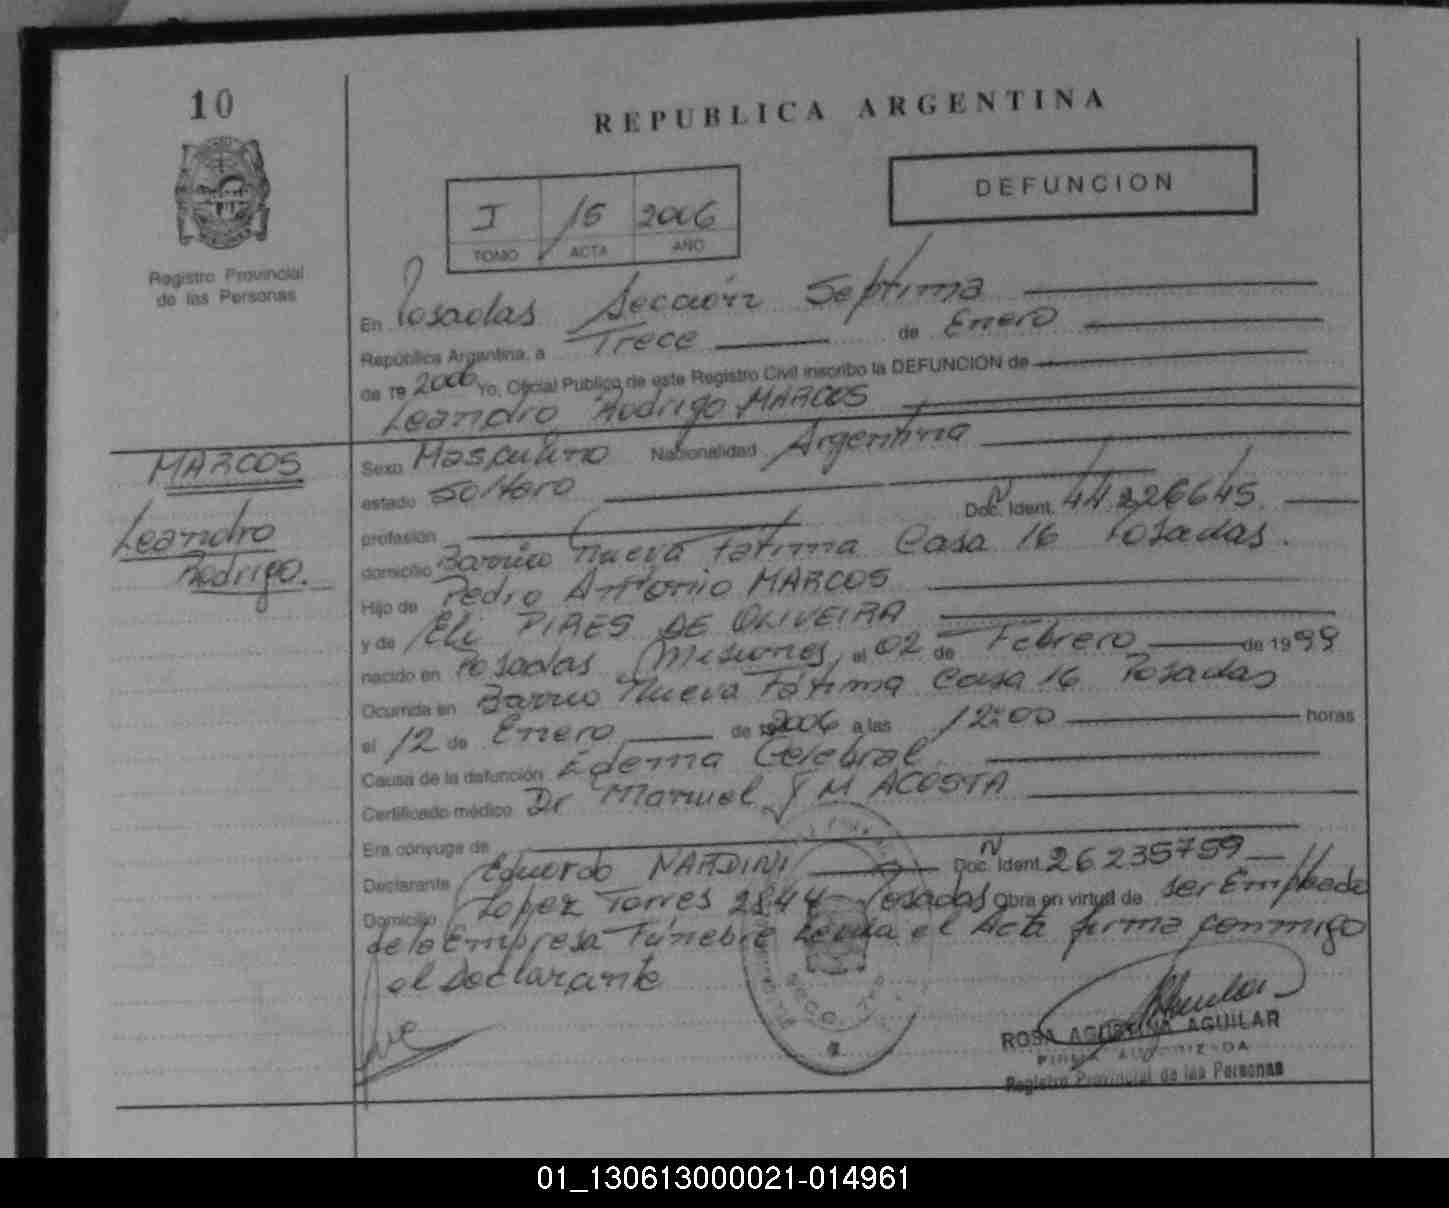 10
REPUBLICA ARGENTINA
DEFUNCION
I 15 2006
TOMO ACTA AÑO
Registro Provincial
de las Personas
En Posadas Sección Septima
República Argentina, a Trece de Enero
de 19 2006 Yo, Oficial Público de este Registro Civil inscribo la DEFUNCION de
Leandro Rodrigo MARCOS
MARCOS
Leandro
Rodrigo.
Sexo Masculino Nacionalidad Argentina
estado Soltero
profesión Doc. Ident. Nº 44.226645.
domicilio Barrio Nueva Fatima Casa 16 Posadas.
Hijo de Pedro Antonio MARCOS
y de Eli PIRES DE OLIVEIRA
nacido en Posadas Misiones, el 02 de Febrero de 1999
Ocurrida en Barrio Nueva Fátima Casa 16 Posadas
el 12 de Enero de 19 2006 a las 12:00 horas
Causa de la defunción Edema Cerebral
Certificado médico Dr Manuel J M ACOSTA
Era cónyuge de
Declarante Eduardo NARDINI Doc. Ident. Nº 26.235759
Domicilio Lopez Torres 2844 Posadas Obra en virtud de ser Empleado
de la Empresa Fúnebre Leida el Acta firma conmigo
el Declarante
ROSA AGUSTINA AGUILAR
FIRMA AUTORIZADA
Registro Provincial de las Personas
01_130613000021-014961